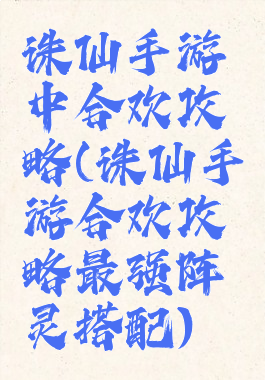 诛仙手游
中合欢攻
略(诛仙手
游合欢攻
略最强阵
灵搭配)